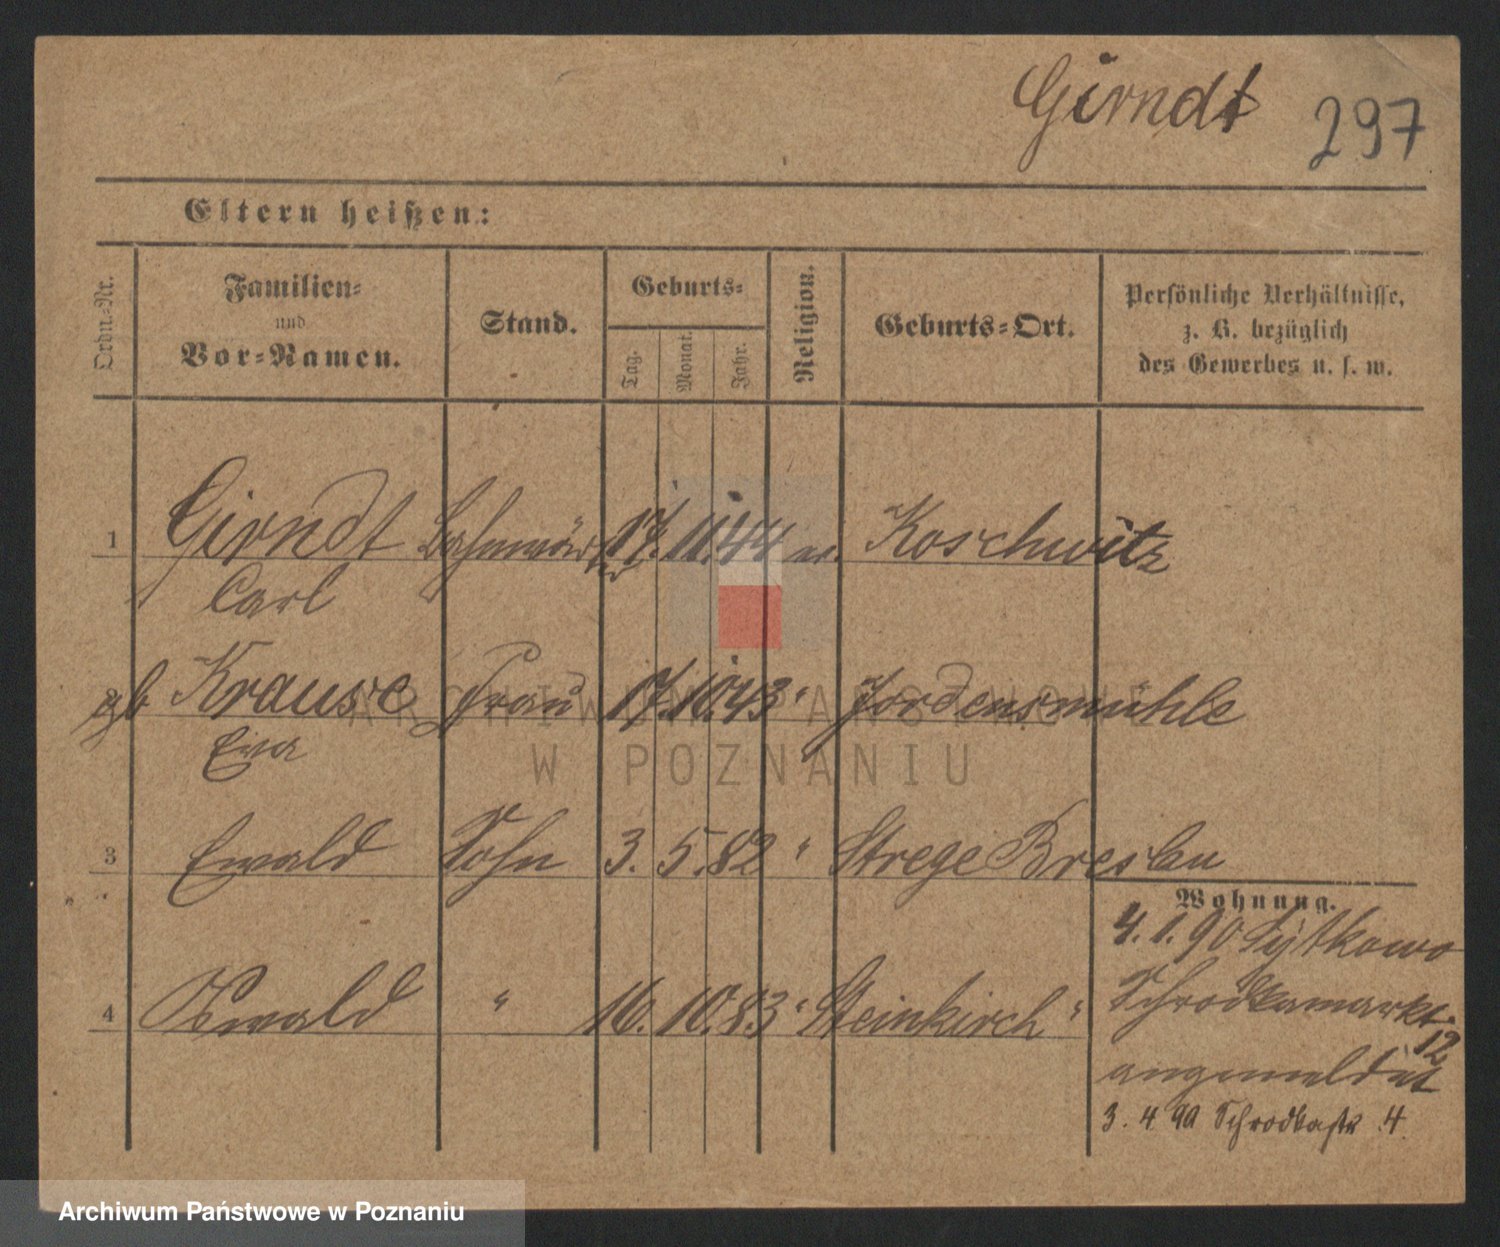 Girndt 297
Eltern heißen:
Ordn.-Nr.
Familien-
und
Vor-Namen.
Stand.
Geburts-
Tag. Monat. Jahr.
Religion.
Geburts-Ort.
Persönliche Verhältnisse,
z. B. bezüglich
des Gewerbes u. s. w.
1 Girndt Bahnwärter 17. 11. 44 ev. Koschwitz
Carl
gb Krause Frau 17. 10. 43 " Jordensmühle
Eva
3 Ewald Sohn 3. 5. 82 " Strege Breslau
4 Oswald " 16. 10. 83 " Steinkirch "
Wohnung.
4. 1. 90 Sytkowo
Schrodkamarkt
12
angemeldet
3. 4 90 Schrodkastr 4
ARCHIWUM PAŃSTWOWE
W POZNANIU
Archiwum Państwowe w Poznaniu